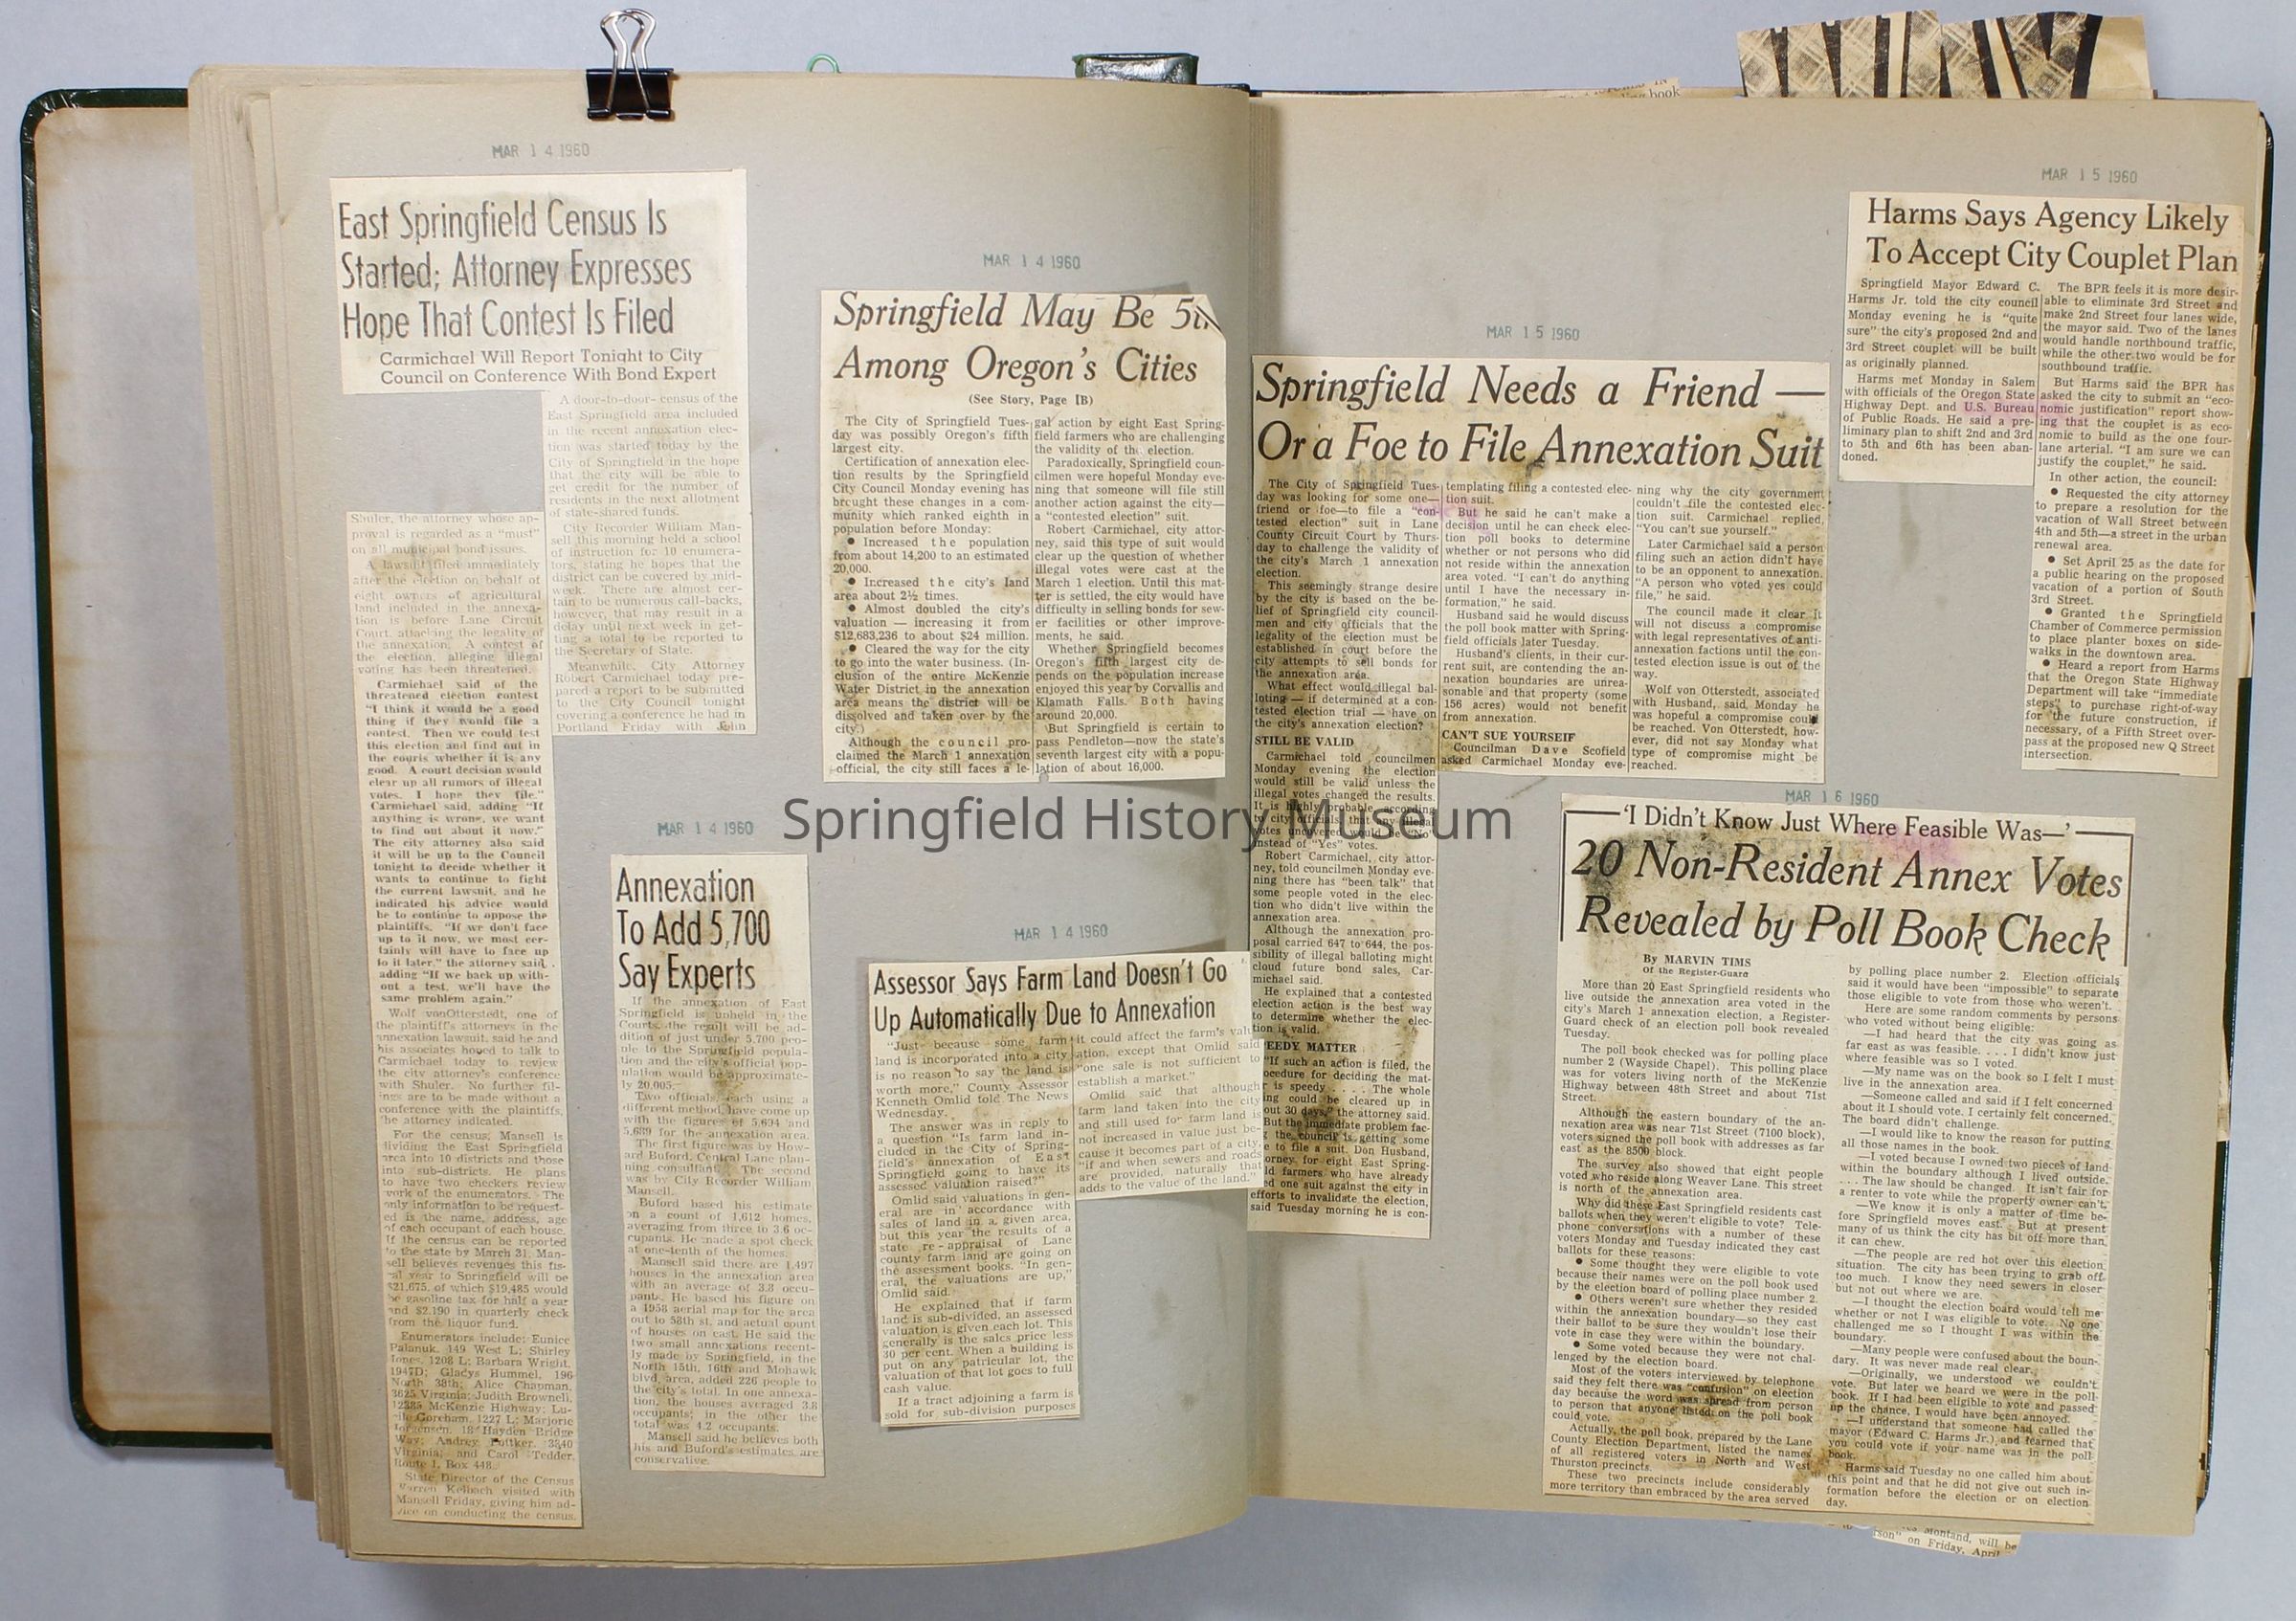 MAR 14 1960
East Springfield Census Is
Started; Attorney Expresses
Hope That Contest Is Filed
Carmichael Will Report Tonight to City
Council on Conference With Bond Expert
A door-to-door census of the
East Springfield area included
in the recent annexation elec-
tion was started today by the
City of Springfield in the hope
that the city will be able to
get credit for the number of
residents in the next allotment
of state-shared funds.
City Recorder William Man-
sell this morning held a school
of instruction for 10 enumera-
tors, stating he hopes that the
district can be covered by mid-
week. There are almost cer-
tain to be numerous call-backs,
however, that may result in a
delay until next week in get-
ting a total to be reported to
the Secretary of State.
Meanwhile, City Attorney
Robert Carmichael today pre-
pared a report to be submitted
to the City Council tonight
covering a conference he had in
Portland Friday with John
Shuler, the attorney whose ap-
proval is regarded as a "must"
on all municipal bond issues.
A lawsuit filed immediately
after the election on behalf of
eight owners of agricultural
land included in the annexa-
tion is before Lane Circuit
Court, attacking the legality of
the annexation. A contest of
the election, alleging illegal
voting has been threatened.
Carmichael said of the
threatened election contest
"I think it would be a good
thing if they would file a
contest. Then we could test
this election and find out in
the courts whether it is any
good. A court decision would
clear up all rumors of illegal
votes. I hope they file."
Carmichael said, adding "If
anything is wrong, we want
to find out about it now."
The city attorney also said
it will be up to the Council
tonight to decide whether it
wants to continue to fight
the current lawsuit, and he
indicated his advice would
be to continue to oppose the
plaintiffs. "If we don't face
up to it now, we most cer-
tainly will have to face up
to it later," the attorney said,
adding "If we back up with-
out a test, we'll have the
same problem again."
Wolf vonOtterstedt, one of
the plaintiff's attorneys in the
annexation lawsuit, said he and
his associates hoped to talk to
Carmichael today to review
the city attorney's conference
with Shuler. No further fil-
ings are to be made without a
conference with the plaintiffs,
the attorney indicated.
For the census, Mansell is
dividing the East Springfield
area into 10 districts and those
into sub-districts. He plans
to have two checkers review
work of the enumerators. The
only information to be request-
ed is the name, address, age
of each occupant of each house.
If the census can be reported
to the state by March 31, Man-
sell believes revenues this fis-
cal year to Springfield will be
$21,675, of which $19,485 would
be gasoline tax for half a year
and $2,190 in quarterly check
from the liquor fund.
Enumerators include: Eunice
Palanuk, 149 West L; Shirley
Jones, 1208 L; Barbara Wright,
1947D; Gladys Hummel, 196
North 38th; Alice Chapman,
3625 Virginia; Judith Brownell,
McKenzie Highway; Lu-
Gorcham, 1227 L; Marjorie
Jorgensen, 18 Hayden Bridge
Way; Andrey 3340
Virginia; and Carol Tedder,
Route 1, Box 448.
State Director of the Census
Warren Kelbach visited with
Mansell Friday, giving him ad-
vice on conducting the census.
MAR 14 1960
Annexation
To Add 5,700
Say Experts
If the annexation of East
Springfield is upheld in the
Courts, the result will be ad-
dition of just under 5,700 peo-
ple to the Springfield popula-
tion and the city's official pop-
ulation would be approximate-
ly 20,005.
Two officials, each using a
different method, have come up
with the figures of 5,694 and
5,689 for the annexation area.
The first figure was by How-
ard Buford, Central Lane plan-
ning consultant. The second
was by City Recorder William
Mansell.
Buford based his estimate
on a count of 1,612 homes,
averaging from three to 3.6 oc-
cupants. He made a spot check
at one-tenth of the homes.
Mansell said there are 1,497
houses in the annexation area
with an average of 3.8 occu-
pants. He based his figure on
a 1958 aerial map for the area
out to 58th st. and actual count
of houses on east. He said the
two small annexations recent-
ly made by Springfield, in the
North 15th, 16th and Mohawk
blvd. area, added 226 people to
the city's total. In one annexa-
tion, the houses averaged 3.8
occupants; in the other the
total was 4.2 occupants.
Mansell said he believes both
his and Buford's estimates are
conservative.
MAR 14 1960
Springfield May Be 5th
Among Oregon's Cities
(See Story, Page 1B)
The City of Springfield Tues-
day was possibly Oregon's fifth
largest city.
Certification of annexation elec-
tion results by the Springfield
City Council Monday evening has
brought these changes in a com-
munity which ranked eighth in
population before Monday:
● Increased the population
from about 14,200 to an estimated
20,000.
● Increased the city's land
area about 2½ times.
● Almost doubled the city's
valuation — increasing it from
$12,683,236 to about $24 million.
● Cleared the way for the city
to go into the water business. (In-
clusion of the entire McKenzie
Water District in the annexation
area means the district will be
dissolved and taken over by the
city.)
Although the council pro-
claimed the March 1 annexation
official, the city still faces a le-
gal action by eight East Spring-
field farmers who are challenging
the validity of the election.
Paradoxically, Springfield coun-
cilmen were hopeful Monday eve-
ning that someone will file still
another action against the city—
a "contested election" suit.
Robert Carmichael, city attor-
ney, said this type of suit would
clear up the question of whether
illegal votes were cast at the
March 1 election. Until this mat-
ter is settled, the city would have
difficulty in selling bonds for sew-
er facilities or other improve-
ments, he said.
Whether Springfield becomes
Oregon's fifth largest city de-
pends on the population increase
enjoyed this year by Corvallis and
Klamath Falls. Both having
around 20,000.
But Springfield is certain to
pass Pendleton—now the state's
seventh largest city with a popu-
lation of about 16,000.
MAR 14 1960
Assessor Says Farm Land Doesn't Go
Up Automatically Due to Annexation
"Just because some farm
land is incorporated into a city
is no reason to say the land is
worth more," County Assessor
Kenneth Omlid told The News
Wednesday.
The answer was in reply to
a question "Is farm land in-
cluded in the City of Spring-
field's annexation of East
Springfield going to have its
assessed valuation raised?"
Omlid said valuations in gen-
eral are in accordance with
sales of land in a given area,
but this year the results of a
state re-appraisal of Lane
county farm land are going on
the assessment books. "In gen-
eral, the valuations are up,"
Omlid said.
He explained that if farm
land is sub-divided, an assessed
valuation is given each lot. This
generally is the sales price less
30 per cent. When a building is
put on any patricular lot, the
valuation of that lot goes to full
cash value.
If a tract adjoining a farm is
sold for sub-division purposes
it could affect the farm's valu-
ation, except that Omlid said
"one sale is not sufficient to
establish a market."
Omlid said that although
farm land taken into the city
and still used for farm land is
not increased in value just be-
cause it becomes part of a city,
"if and when sewers and roads
are provided, naturally that
adds to the value of the land."
MAR 15 1960
Springfield Needs a Friend —
Or a Foe to File Annexation Suit
The City of Springfield Tues-
day was looking for some one—
friend or foe—to file a "con-
tested election" suit in Lane
County Circuit Court by Thurs-
day to challenge the validity of
the city's March 1 annexation
election.
This seemingly strange desire
by the city is based on the be-
lief of Springfield city council-
men and city officials that the
legality of the election must be
established in court before the
city attempts to sell bonds for
the annexation area.
What effect would illegal bal-
loting — if determined at a con-
tested election trial — have on
the city's annexation election?
STILL BE VALID
Carmichael told councilmen
Monday evening the election
would still be valid unless the
illegal votes changed the results.
It is highly probable, according
to city officials, that any illegal
votes uncovered would be "No"
instead of "Yes" votes.
Robert Carmichael, city attor-
ney, told councilmen Monday eve-
ning there has "been talk" that
some people voted in the elec-
tion who didn't live within the
annexation area.
Although the annexation pro-
posal carried 647 to 644, the pos-
sibility of illegal balloting might
cloud future bond sales, Car-
michael said.
He explained that a contested
election action is the best way
to determine whether the elec-
tion is valid.
EEDY MATTER
"If such an action is filed, the
ocedure for deciding the mat-
r is speedy . . . . The whole
ing could be cleared up in
out 30 days," the attorney said.
But the immediate problem fac-
g the council is getting some
e to file a suit. Don Husband,
orney, for eight East Spring-
ld farmers who have already
ed one suit against the city in
efforts to invalidate the election,
said Tuesday morning he is con-
templating filing a contested elec-
tion suit.
But he said he can't make a
decision until he can check elec-
tion poll books to determine
whether or not persons who did
not reside within the annexation
area voted. "I can't do anything
until I have the necessary in-
formation," he said.
Husband said he would discuss
the poll book matter with Spring-
field officials later Tuesday.
Husband's clients, in their cur-
rent suit, are contending the an-
nexation boundaries are unrea-
sonable and that property (some
156 acres) would not benefit
from annexation.
CAN'T SUE YOURSELF
Councilman Dave Scofield
asked Carmichael Monday eve-
ning why the city government
couldn't file the contested elec-
tion suit. Carmichael replied,
"You can't sue yourself."
Later Carmichael said a person
filing such an action didn't have
to be an opponent to annexation.
"A person who voted yes could
file," he said.
The council made it clear it
will not discuss a compromise
with legal representatives of anti-
annexation factions until the con-
tested election issue is out of the
way.
Wolf von Otterstedt, associated
with Husband, said, Monday he
was hopeful a compromise could
be reached. Von Otterstedt, how-
ever, did not say Monday what
type of compromise might be
reached.
MAR 15 1960
Harms Says Agency Likely
To Accept City Couplet Plan
Springfield Mayor Edward C.
Harms Jr. told the city council
Monday evening he is "quite
sure" the city's proposed 2nd and
3rd Street couplet will be built
as originally planned.
Harms met Monday in Salem
with officials of the Oregon State
Highway Dept. and U.S. Bureau
of Public Roads. He said a pre-
liminary plan to shift 2nd and 3rd
to 5th and 6th has been aban-
doned.
The BPR feels it is more desir-
able to eliminate 3rd Street and
make 2nd Street four lanes wide,
the mayor said. Two of the lanes
would handle northbound traffic,
while the other two would be for
southbound traffic.
But Harms said the BPR has
asked the city to submit an "eco-
nomic justification" report show-
ing that the couplet is as eco-
nomic to build as the one four-
lane arterial. "I am sure we can
justify the couplet," he said.
In other action, the council:
● Requested the city attorney
to prepare a resolution for the
vacation of Wall Street between
4th and 5th—a street in the urban
renewal area.
● Set April 25 as the date for
a public hearing on the proposed
vacation of a portion of South
3rd Street.
● Granted the Springfield
Chamber of Commerce permission
to place planter boxes on side-
walks in the downtown area.
● Heard a report from Harms
that the Oregon State Highway
Department will take "immediate
steps" to purchase right-of-way
for the future construction, if
necessary, of a Fifth Street over-
pass at the proposed new Q Street
intersection.
MAR 16 1960
—'I Didn't Know Just Where Feasible Was—'—
20 Non-Resident Annex Votes
Revealed by Poll Book Check
By MARVIN TIMS
Of the Register-Guard
More than 20 East Springfield residents who
live outside the annexation area voted in the
city's March 1 annexation election, a Register-
Guard check of an election poll book revealed
Tuesday.
The poll book checked was for polling place
number 2 (Wayside Chapel). This polling place
was for voters living north of the McKenzie
Highway between 48th Street and about 71st
Street.
Although the eastern boundary of the an-
nexation area was near 71st Street (7100 block),
voters signed the poll book with addresses as far
east as the 8500 block.
The survey also showed that eight people
voted who reside along Weaver Lane. This street
is north of the annexation area.
Why did these East Springfield residents cast
ballots when they weren't eligible to vote? Tele-
phone conversations with a number of these
voters Monday and Tuesday indicated they cast
ballots for these reasons:
● Some thought they were eligible to vote
because their names were on the poll book used
by the election board of polling place number 2.
● Others weren't sure whether they resided
within the annexation boundary—so they cast
their ballot to be sure they wouldn't lose their
vote in case they were within the boundary.
● Some voted because they were not chal-
lenged by the election board.
Most of the voters interviewed by telephone
said they felt there was "confusion" on election
day because the word was spread from person
to person that anyone listed on the poll book
could vote.
Actually, the poll book, prepared by the Lane
County Election Department, listed the names
of all registered voters in North and West
Thurston precincts.
These two precincts include considerably
more territory than embraced by the area served
by polling place number 2. Election officials
said it would have been "impossible" to separate
those eligible to vote from those who weren't.
Here are some random comments by persons
who voted without being eligible:
—I had heard that the city was going as
far east as was feasible. . . . I didn't know just
where feasible was so I voted.
—My name was on the book so I felt I must
live in the annexation area.
—Someone called and said if I felt concerned
about it I should vote. I certainly felt concerned.
The board didn't challenge.
—I would like to know the reason for putting
all those names in the book.
—I voted because I owned two pieces of land
within the boundary although I lived outside.
. . . . The law should be changed. It isn't fair for
a renter to vote while the property owner can't.
—We know it is only a matter of time be-
fore Springfield moves east. But at present
many of us think the city has bit off more than
it can chew.
—The people are red hot over this election
situation. The city has been trying to grab off
too much. I know they need sewers in closer
but not out where we are.
—I thought the election board would tell me
whether or not I was eligible to vote. No one
challenged me so I thought I was within the
boundary.
—Many people were confused about the boun-
dary. It was never made real clear.
—Originally, we understood we couldn't
vote. But later we heard we were in the poll
book. If I had been eligible to vote and passed
up the chance, I would have been annoyed.
—I understand that someone had called the
mayor (Edward C. Harms Jr.) and learned that
you could vote if your name was in the poll
book.
Harms said Tuesday no one called him about
this point and that he did not give out such in-
formation before the election or on election
day.
Springfield History Museum
book
Montand, will be
son" on Friday, April